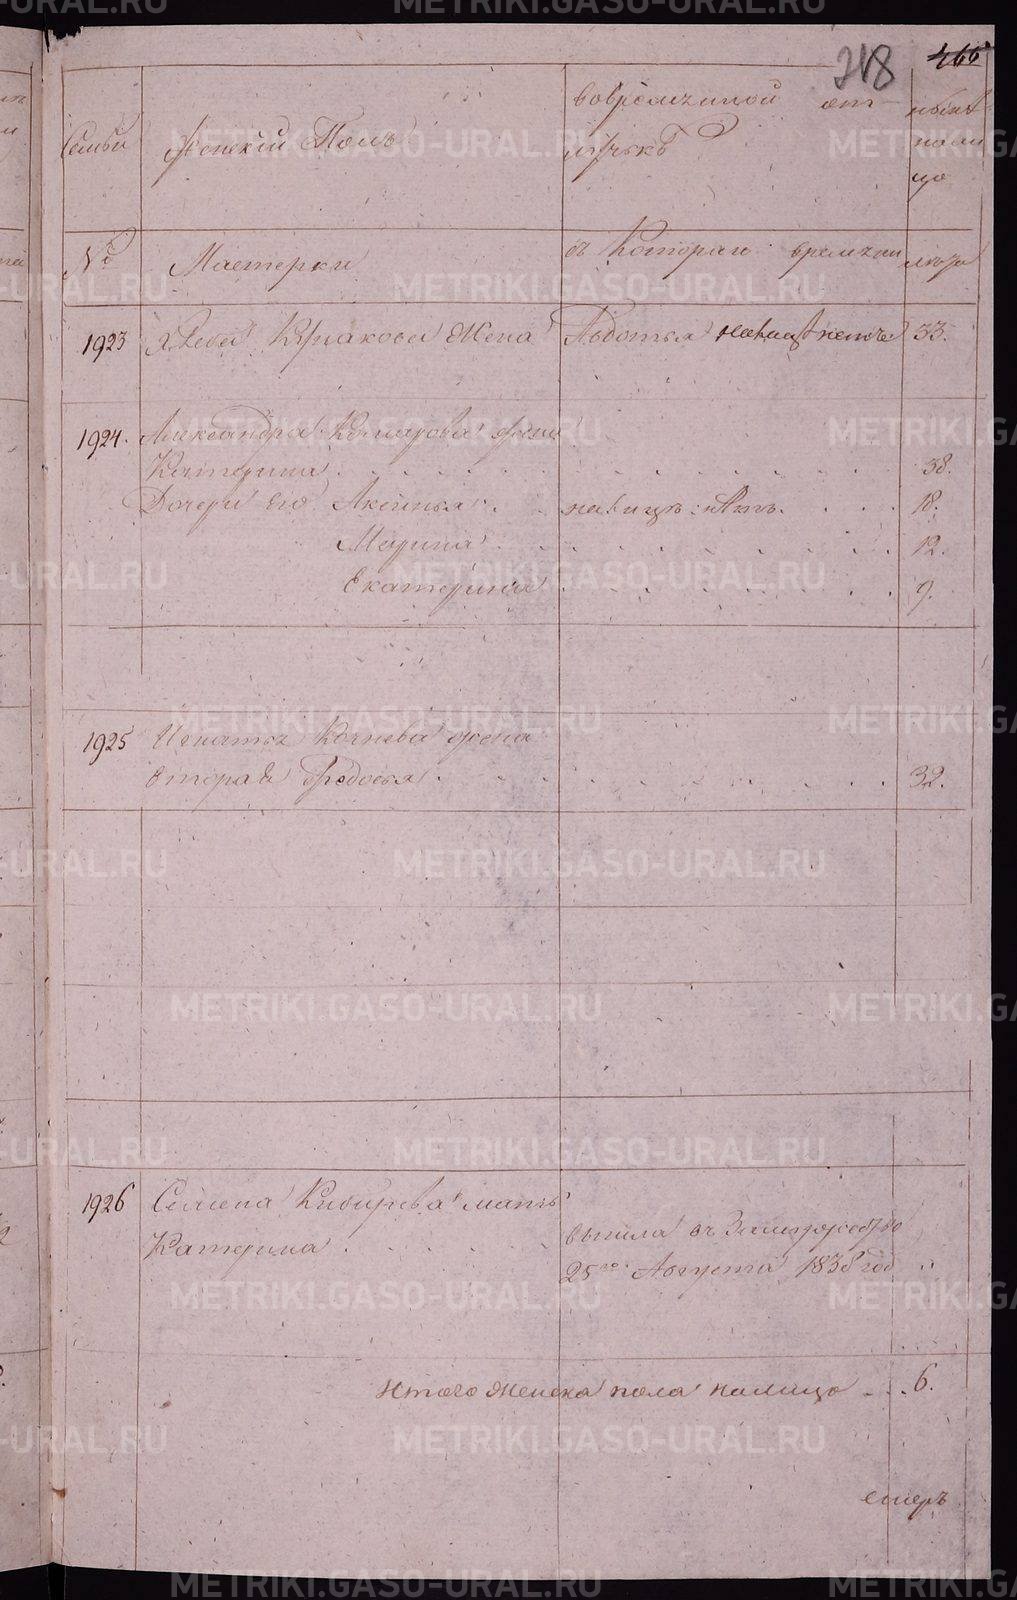 218 466
Семьи Женскiй Полъ вовременной от- ныне
лучькѣ нали
цо
№ Мастерки съ Котораги времени лѣта
1923 Жена Авдотья налицѣ нетъ 33.
1924. Александра Кочнарова жена
Катерина 38.
Дочери его Аксинья налицѣ нѣтъ. 18.
Марина 12.
Екатерина 9.
1925 Игнатья Кочнева жена
вторая Федосья 32.
1926 Семена Кибирева мать
Катерина вышла въ Замужество
25го Августа 1838 год "
Итого женска пола налицо 6.
METRIKI.GASO-URAL.RU